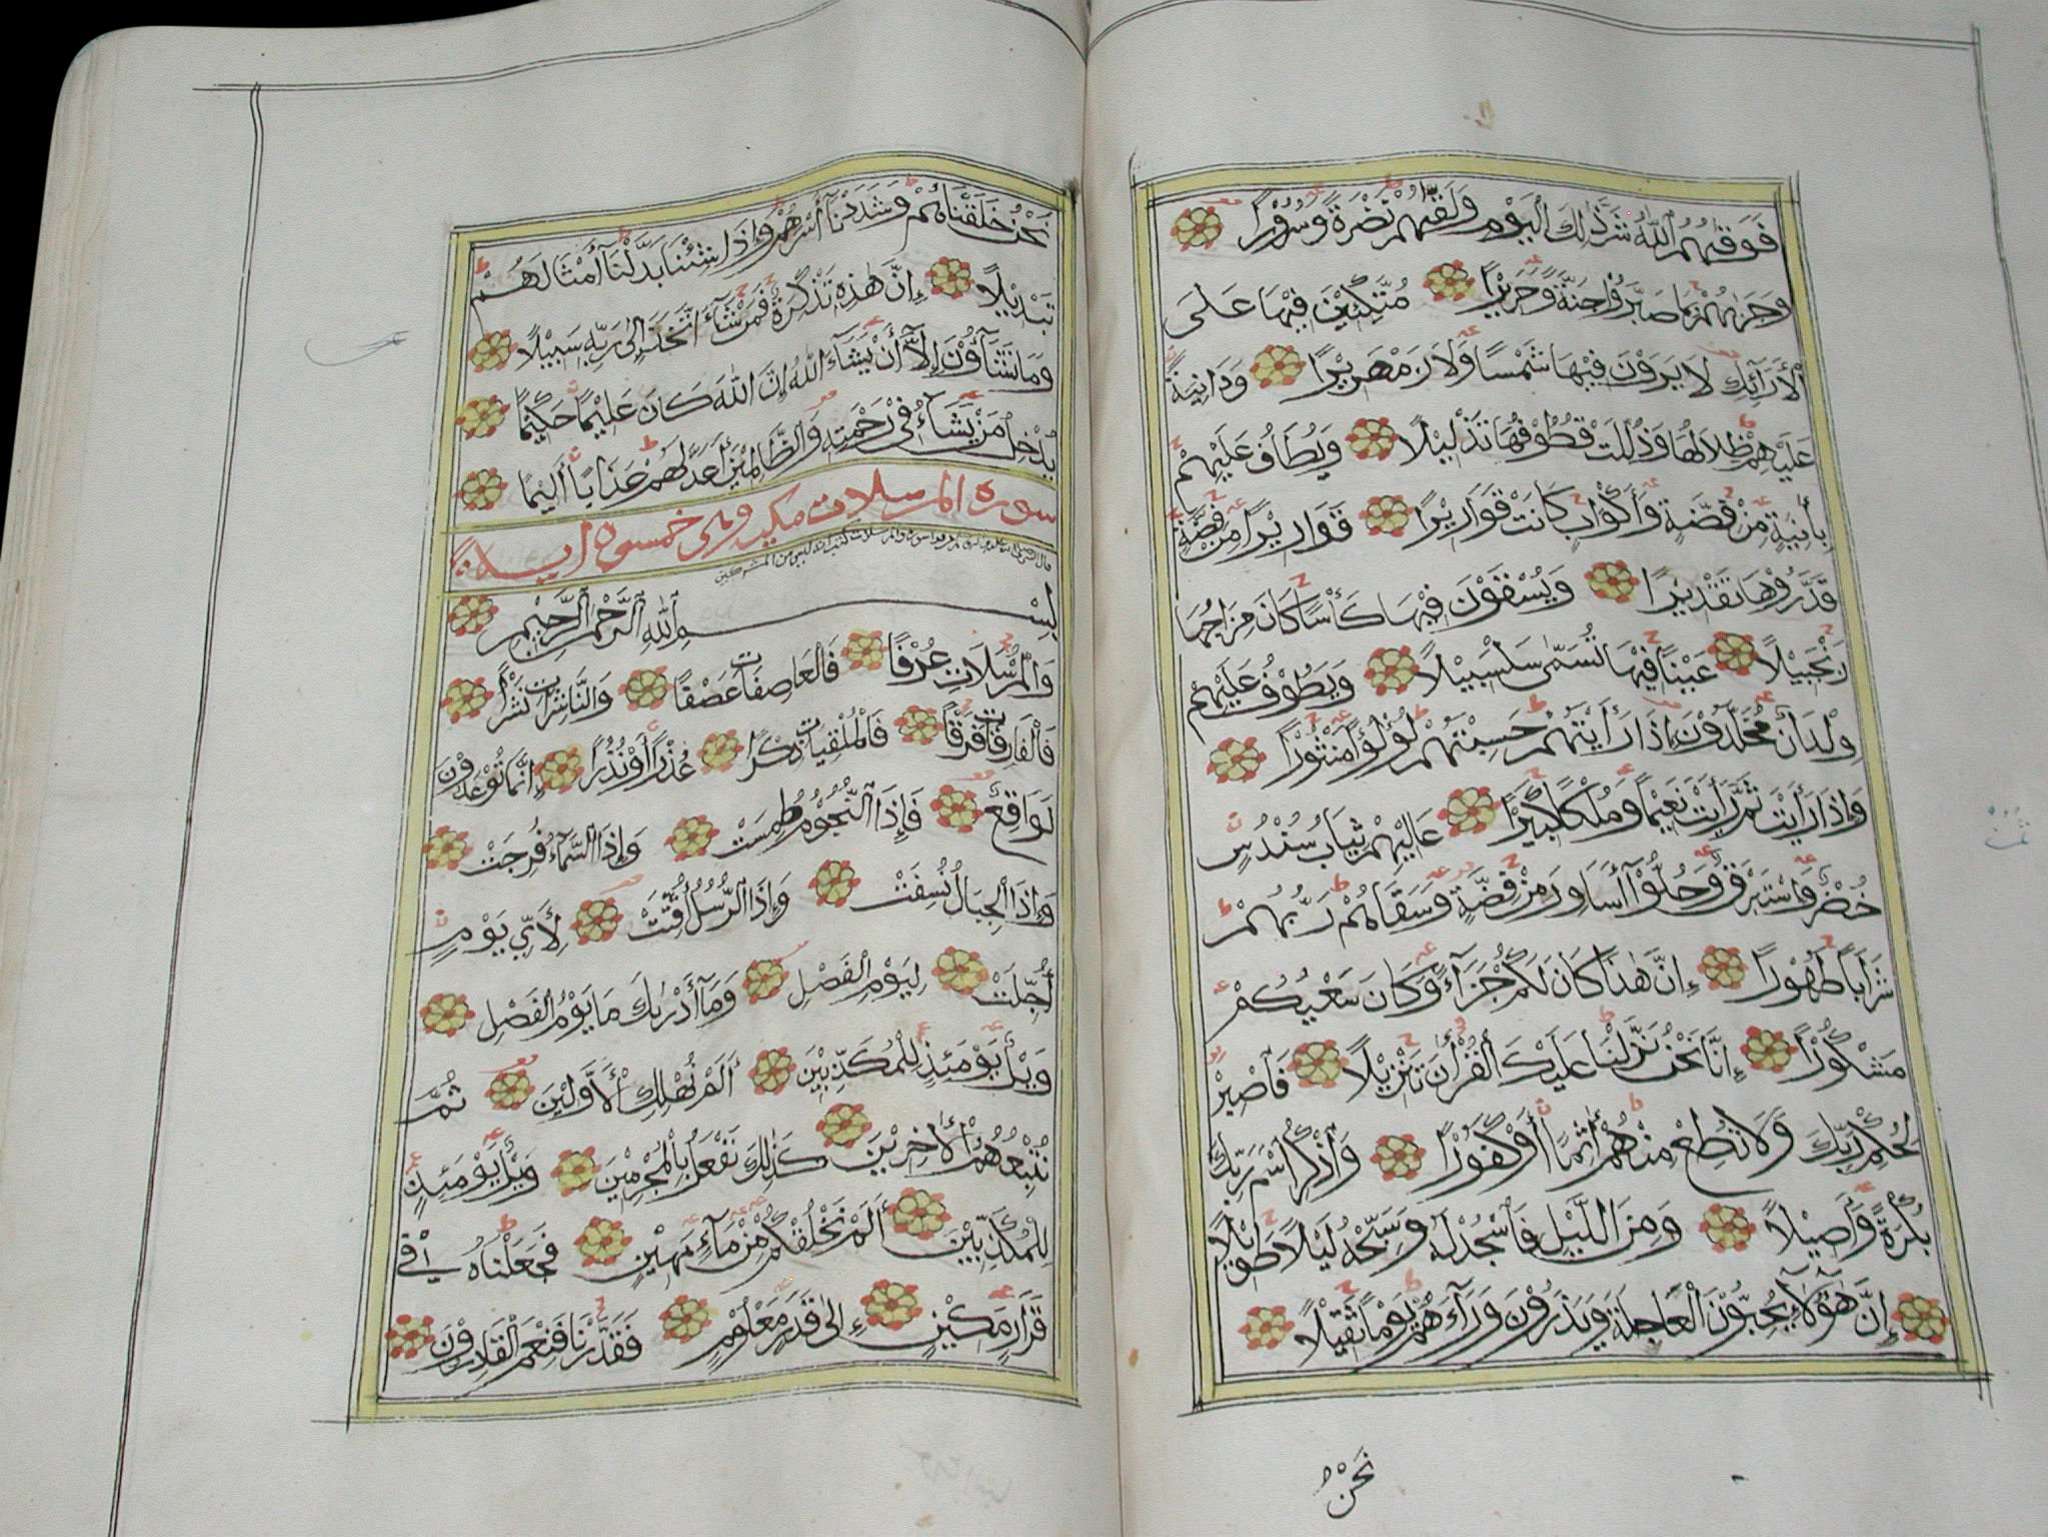 فَوَقٰىهُمُ ٱللّٰهُ شَرَّ ذٰلِكَ ٱلْيَوْمِ وَلَقّٰىهُمْ نَضْرَةً وَّسُرُوْرًا
وَجَزٰىهُمْ بِمَا صَبَرُوْا جَنَّةً وَّحَرِيْرًا مُتَّكِئِيْنَ فِيْهَا عَلَى
ٱلْأَرَآئِكِ لَا يَرَوْنَ فِيْهَا شَمْسًا وَلَا زَمْهَرِيْرًا وَدَانِيَةً
عَلَيْهِمْ ظِلَالُهَا وَذُلِّلَتْ قُطُوْفُهَا تَذْلِيْلًا وَيُطَافُ عَلَيْهِمْ
بِأٰنِيَةٍ مِّنْ فِضَّةٍ وَّأَكْوَابٍ كَانَتْ قَوَارِيْرَا قَوَارِيْرَا مِنْ فِضَّةٍ
قَدَّرُوْهَا تَقْدِيْرًا وَيُسْقَوْنَ فِيْهَا كَأْسًا كَانَ مِزَاجُهَا
زَنْجَبِيْلًا عَيْنًا فِيْهَا تُسَمّٰى سَلْسَبِيْلًا وَيَطُوْفُ عَلَيْهِمْ
وِلْدَانٌ مُّخَلَّدُوْنَ إِذَا رَأَيْتَهُمْ حَسِبْتَهُمْ لُؤْلُؤًا مَّنْثُوْرًا
وَإِذَا رَأَيْتَ ثَمَّ رَأَيْتَ نَعِيْمًا وَّمُلْكًا كَبِيْرًا عَالِيَهُمْ ثِيَابُ سُنْدُسٍ
خُضْرٌ وَّإِسْتَبْرَقٌ وَّحُلُّوْآ أَسَاوِرَ مِنْ فِضَّةٍ وَسَقَاهُمْ رَبُّهُمْ
شَرَابًا طَهُوْرًا إِنَّ هٰذَا كَانَ لَكُمْ جَزَآءً وَّكَانَ سَعْيُكُمْ
مَشْكُوْرًا إِنَّا نَحْنُ نَزَّلْنَا عَلَيْكَ ٱلْقُرْأٰنَ تَنْزِيْلًا فَاصْبِرْ
لِحُكْمِ رَبِّكَ وَلَا تُطِعْ مِنْهُمْ أٰثِمًا أَوْ كَفُوْرًا وَٱذْكُرِ ٱسْمَ رَبِّكَ
بُكْرَةً وَّأَصِيْلًا وَمِنَ اللَّيْلِ فَٱسْجُدْ لَهُ وَسَبِّحْهُ لَيْلًا طَوِيْلًا
إِنَّ هٰٓؤُلَآءِ يُحِبُّوْنَ ٱلْعَاجِلَةَ وَيَذَرُوْنَ وَرَآءَهُمْ يَوْمًا ثَقِيْلًا
نَحْنُ
نَحْنُ خَلَقْنَاهُمْ وَشَدَدْنَآ أَسْرَهُمْ وَإِذَا شِئْنَا بَدَّلْنَآ أَمْثَالَهُمْ
تَبْدِيْلًا إِنَّ هٰذِهِ تَذْكِرَةٌ فَمَنْ شَآءَ اتَّخَذَ إِلٰى رَبِّهِ سَبِيْلًا
وَمَا تَشَآؤُنَ إِلَّآ أَنْ يَّشَآءَ اللّٰهُ إِنَّ اللّٰهَ كَانَ عَلِيْمًا حَكِيْمًا
يُدْخِلُ مَنْ يَّشَآءُ فِيْ رَحْمَتِهِ وَالظَّالِمِيْنَ أَعَدَّ لَهُمْ عَذَابًا أَلِيْمًا
سورة المرسلات مكية وهى خمسون اية
بِسْمِ ٱللّٰهِ ٱلرَّحْمٰنِ ٱلرَّحِيْمِ
وَٱلْمُرْسَلَاتِ عُرْفًا فَٱلْعَاصِفَاتِ عَصْفًا وَالنَّاشِرَاتِ نَشْرًا
فَٱلْفَارِقَاتِ فَرْقًا فَٱلْمُلْقِيَاتِ ذِكْرًا عُذْرًا أَوْ نُذْرًا إِنَّمَا تُوْعَدُوْنَ
لَوَاقِعٌ فَإِذَا ٱلنُّجُوْمُ طُمِسَتْ وَإِذَا ٱلسَّمَآءُ فُرِجَتْ
وَإِذَا ٱلْجِبَالُ نُسِفَتْ وَإِذَا ٱلرُّسُلُ أُقِّتَتْ لِأَيِّ يَوْمٍ
أُجِّلَتْ لِيَوْمِ ٱلْفَصْلِ وَمَآ أَدْرٰىكَ مَا يَوْمُ ٱلْفَصْلِ
وَيْلٌ يَّوْمَئِذٍ لِّلْمُكَذِّبِيْنَ أَلَمْ نُهْلِكِ ٱلْأَوَّلِيْنَ ثُمَّ
نُتْبِعُهُمُ ٱلْأٰخِرِيْنَ كَذٰلِكَ نَفْعَلُ بِٱلْمُجْرِمِيْنَ وَيْلٌ يَّوْمَئِذٍ
لِلْمُكَذِّبِيْنَ أَلَمْ نَخْلُقْكُمْ مِّنْ مَّآءٍ مَّهِيْنٍ فَجَعَلْنَاهُ فِيْ
قَرَارٍ مَّكِيْنٍ إِلٰى قَدَرٍ مَّعْلُوْمٍ فَقَدَرْنَا فَنِعْمَ ٱلْقَادِرُوْنَ